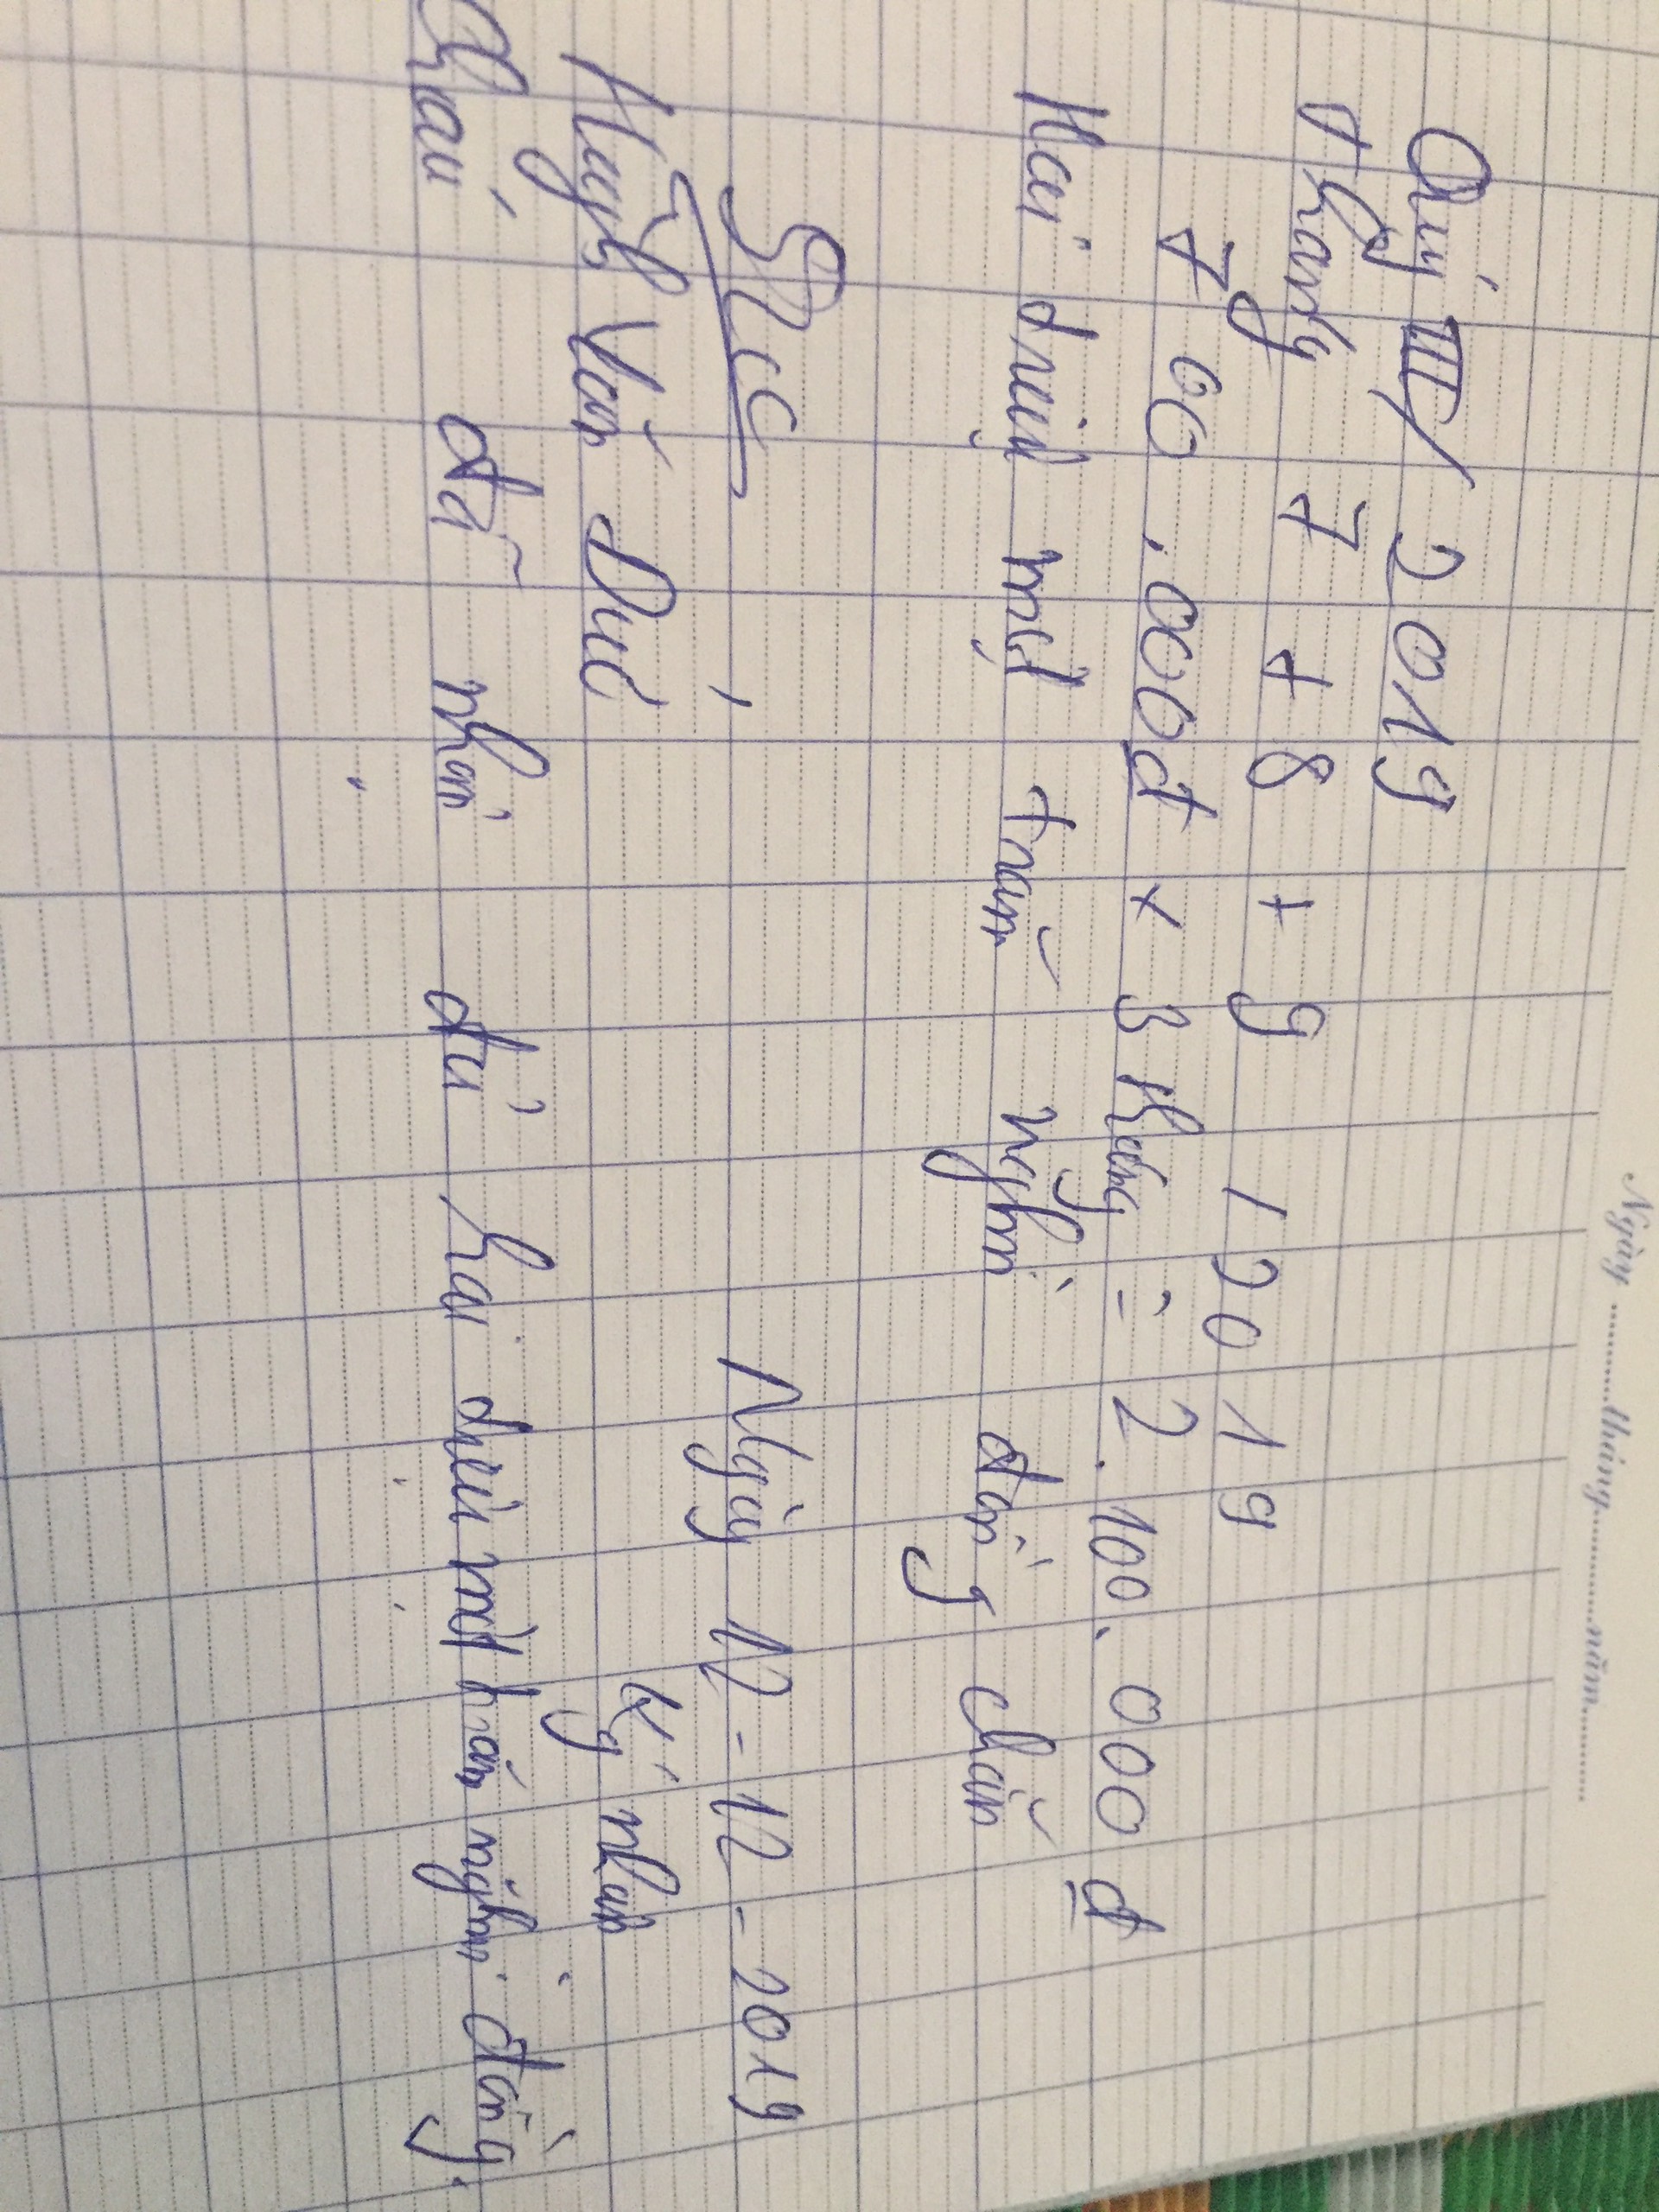 Ngày ............tháng............năm............
Quý III / 2019
Tháng 7 + 8 + 9 / 2019
700.000đ x 3 tháng = 2.100.000đ
Hai triệu một trăm nghìn đồng chẵn
Ngày 12 - 12 - 2019
Huỳnh Văn Đức
Ký nhận
Cháu đã nhận đủ hai triệu một trăm nghìn đồng.